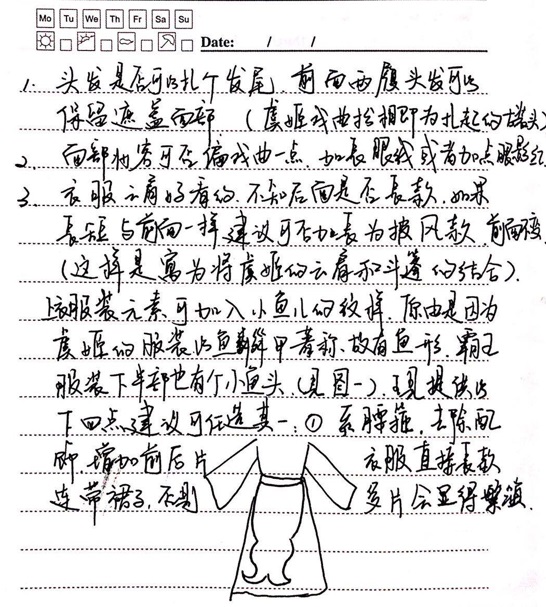 Mo Tu We Th Fr Sa Su
Date: / /
1. 头发是否可以扎个发尾,前面两鬓头发可以
保留遮盖面部 (虞姬戏曲扮相即为扎起的
2. 面部妆容可否偏戏曲一点,加长眼线或者加点眼影红
3. 衣服云肩好看的,不知后面是否长款,如果
长短与前面一样建议可否加长为披风款,前面不变
(这样是寓为将虞姬的云肩和斗篷的结合).
衣服装元素可加入小鱼儿的纹样,原由是因为
虞姬的服装以鱼鳞甲著称,故有鱼形,霸王
服装下半部也有个小鱼头(见图一).现提供以
下四点建议可任选其一:① 系腰箍,去除配
饰,增加前后片 衣服直接长款
连带裙子,不 多片会显得繁琐.